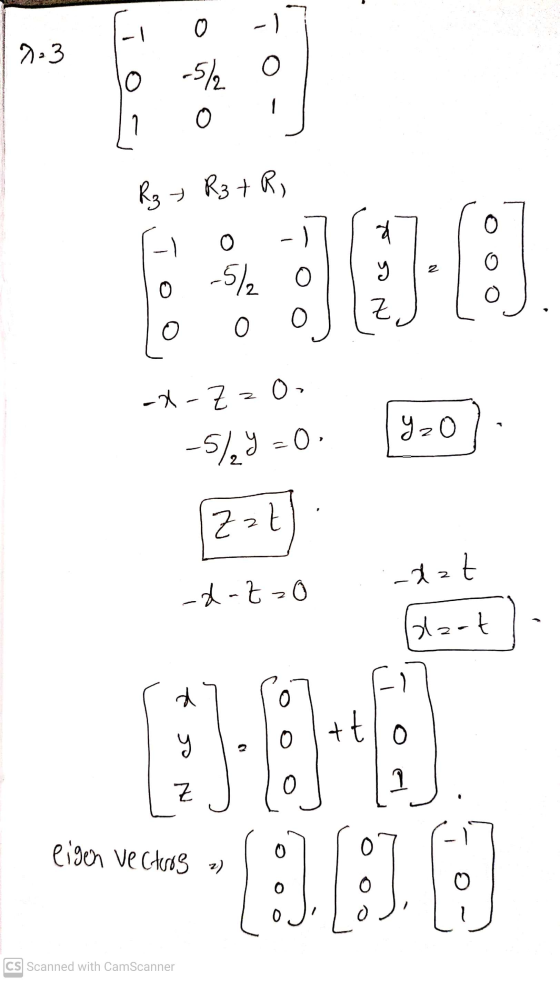 λ=3 [-1 0 -1
0 -5/2 0
1 0 1]
R3 → R3 + R1
[-1 0 -1
0 -5/2 0
0 0 0] [x
y
z] = [0
0
0].
-x - z = 0.
-5/2 y = 0. y=0.
z=t.
-x-t=0 -x=t
x=-t.
[x
y
z] = [0
0
0] + t [-1
0
1].
eigen vectors ⇒ [0
0
0], [0
0
0], [-1
0
1]
CS Scanned with CamScanner